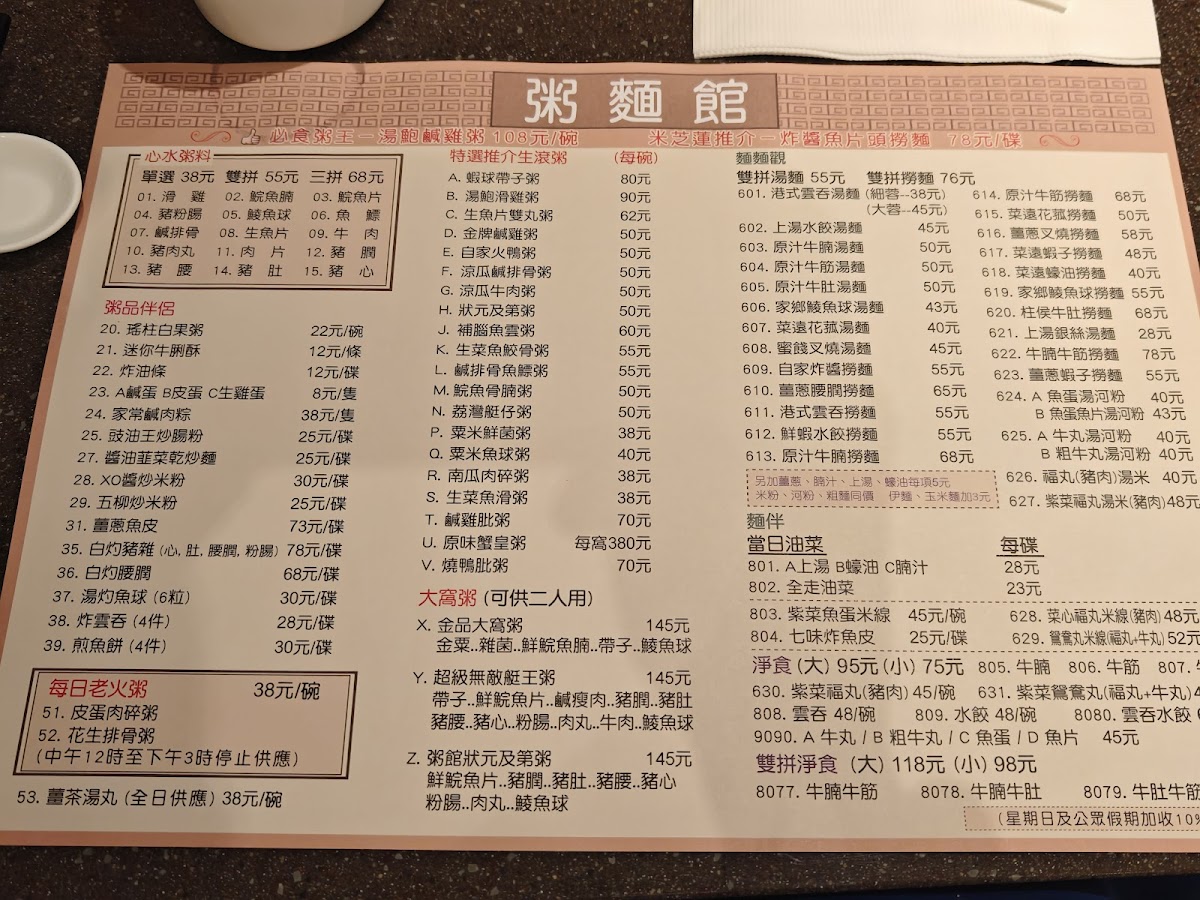 粥麵館
必食粥王－湯鮑鹹雞粥 108元/碗
米芝蓮推介－炸醬魚片頭撈麵 78元/碟
心水粥料
單選 38元 雙拼 55元 三拼 68元
01. 滑雞 02. 鯇魚腩 03. 鯇魚片
04. 豬粉腸 05. 鯪魚球 06. 魚鰾
07. 鹹排骨 08. 生魚片 09. 牛肉
10. 豬肉丸 11. 肉片 12. 豬膶
13. 豬腰 14. 豬肚 15. 豬心
粥品伴侶
20. 瑤柱白果粥 22元/碗
21. 迷你牛脷酥 12元/條
22. 炸油條 12元/碟
23. A鹹蛋 B皮蛋 C生雞蛋 8元/隻
24. 家常鹹肉粽 38元/隻
25. 豉油王炒腸粉 25元/碟
27. 醬油韮菜乾炒麵 25元/碟
28. XO醬炒米粉 30元/碟
29. 五柳炒米粉 25元/碟
31. 薑蔥魚皮 73元/碟
35. 白灼豬雜 (心, 肚, 腰膶, 粉腸) 78元/碟
36. 白灼腰膶 68元/碟
37. 湯灼魚球 (6粒) 30元/碟
38. 炸雲吞 (4件) 28元/碟
39. 煎魚餅 (4件) 30元/碟
每日老火粥 38元/碗
51. 皮蛋肉碎粥
52. 花生排骨粥
(中午12時至下午3時停止供應)
53. 薑茶湯丸 (全日供應) 38元/碗
特選推介生滾粥 (每碗)
A. 蝦球帶子粥 80元
B. 湯鮑滑雞粥 90元
C. 生魚片雙丸粥 62元
D. 金牌鹹雞粥 50元
E. 自家火鴨粥 50元
F. 涼瓜鹹排骨粥 50元
G. 涼瓜牛肉粥 50元
H. 狀元及第粥 50元
J. 補腦魚雲粥 60元
K. 生菜魚鮫骨粥 55元
L. 鹹排骨魚鰾粥 55元
M. 鯇魚骨腩粥 50元
N. 荔灣艇仔粥 50元
P. 粟米鮮菌粥 38元
Q. 粟米魚球粥 40元
R. 南瓜肉碎粥 38元
S. 生菜魚滑粥 38元
T. 鹹雞肶粥 70元
U. 原味蟹皇粥 每窩380元
V. 燒鴨肶粥 70元
大窩粥 (可供二人用)
X. 金品大窩粥 145元
金粟..雜菌..鮮鯇魚腩..帶子..鯪魚球
Y. 超級無敵艇王粥 145元
帶子..鮮鯇魚片..鹹瘦肉..豬膶..豬肚
豬腰..豬心..粉腸..肉丸..牛肉..鯪魚球
Z. 粥館狀元及第粥 145元
鮮鯇魚片..豬膶..豬肚..豬腰..豬心
粉腸..肉丸..鯪魚球
麵麵觀
雙拼湯麵 55元 雙拼撈麵 76元
601. 港式雲吞湯麵 (細蓉--38元)
(大蓉--45元)
602. 上湯水餃湯麵 45元
603. 原汁牛腩湯麵 50元
604. 原汁牛筋湯麵 50元
605. 原汁牛肚湯麵 50元
606. 家鄉鯪魚球湯麵 43元
607. 菜遠花菰湯麵 40元
608. 蜜餞叉燒湯麵 45元
609. 自家炸醬撈麵 55元
610. 薑蔥腰膶撈麵 65元
611. 港式雲吞撈麵 55元
612. 鮮蝦水餃撈麵 55元
613. 原汁牛腩撈麵 68元
614. 原汁牛筋撈麵 68元
615. 菜遠花菰撈麵 50元
616. 薑蔥叉燒撈麵 58元
617. 菜遠蝦子撈麵 48元
618. 菜遠蠔油撈麵 40元
619. 家鄉鯪魚球撈麵 55元
620. 柱侯牛肚撈麵 68元
621. 上湯銀絲湯麵 28元
622. 牛腩牛筋撈麵 78元
623. 薑蔥蝦子撈麵 55元
624. A 魚蛋湯河粉 40元
B 魚蛋魚片湯河粉 43元
625. A 牛丸湯河粉 40元
B 粗牛丸湯河粉 40元
626. 福丸(豬肉)湯米 40元
627. 紫菜福丸湯米(豬肉)48元
另加薑蔥、腩汁、上湯、蠔油每項5元
米粉、河粉、粗麵同價 伊麵、玉米麵加3元
麵伴
當日油菜 每碟
801. A上湯 B蠔油 C腩汁 28元
802. 全走油菜 23元
803. 紫菜魚蛋米線 45元/碗 628. 菜心福丸米線(豬肉)48元
804. 七味炸魚皮 25元/碟 629. 鴛鴦丸米線(福丸+牛丸)52元
淨食 (大) 95元 (小) 75元 805. 牛腩 806. 牛筋 807.
630. 紫菜福丸(豬肉) 45/碗 631. 紫菜鴛鴦丸(福丸+牛丸)4
808. 雲吞 48/碗 809. 水餃 48/碗 8080. 雲吞水餃
9090. A 牛丸 / B 粗牛丸 / C 魚蛋 / D 魚片 45元
雙拼淨食 (大) 118元 (小) 98元
8077. 牛腩牛筋 8078. 牛腩牛肚 8079. 牛肚牛筋
(星期日及公眾假期加收10%